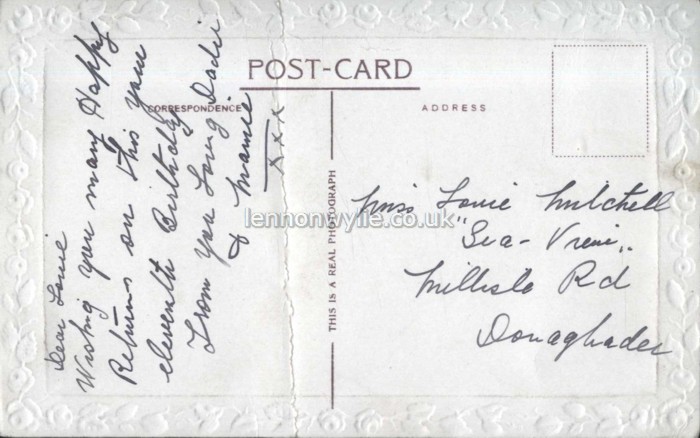 POST-CARD
CORRESPONDENCE
ADDRESS
Dear Louie
Wishing you many Happy
Returns on this your
eleventh Birthday
From you Loving Dadie
& Mamie
XXX
THIS IS A REAL PHOTOGRAPH
Miss Louie Mitchell
"Sea-View"
Millisle Rd
Donaghadee
lennonwylie.co.uk